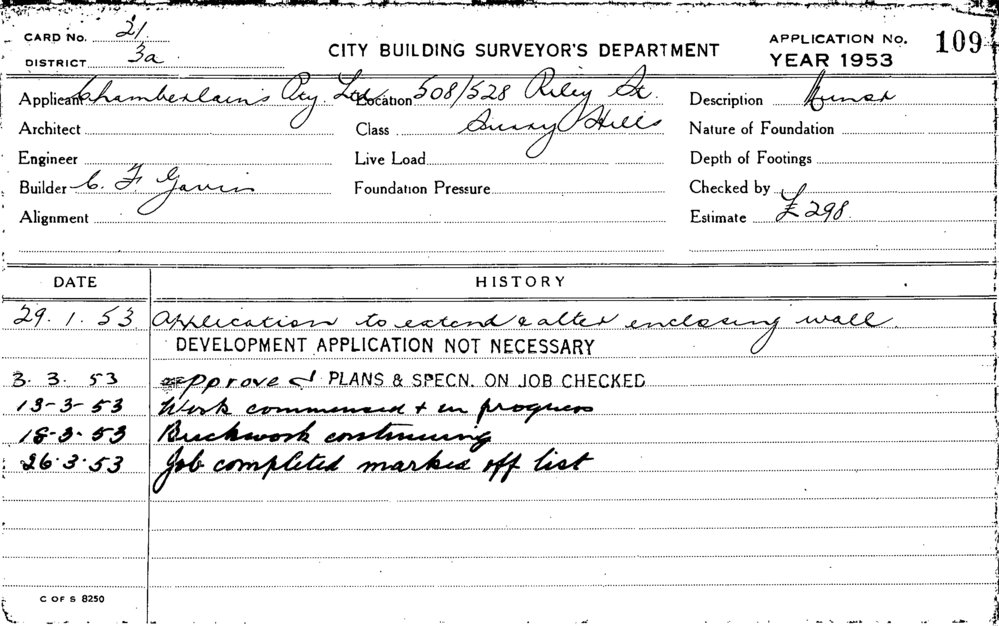 CARD No. 21
DISTRICT 3a
CITY BUILDING SURVEYOR'S DEPARTMENT
APPLICATION No. 109
YEAR 1953
Applicant Chamberlain's Pty. Ltd. Location 508/528 Riley St. Description
Architect Class Surry Hills Nature of Foundation
Engineer Live Load Depth of Footings
Builder C. F. Gavin Foundation Pressure Checked by
Alignment Estimate £298
DATE HISTORY
29. 1. 53 Application to extend & alter enclosing wall.
DEVELOPMENT APPLICATION NOT NECESSARY
3. 3. 53 approved PLANS & SPECN. ON JOB CHECKED
13-3-53 Work commenced + in progress
18-3-53 Brickwork continuing
26.3.53 Job completed marked off list
C OF S 8250